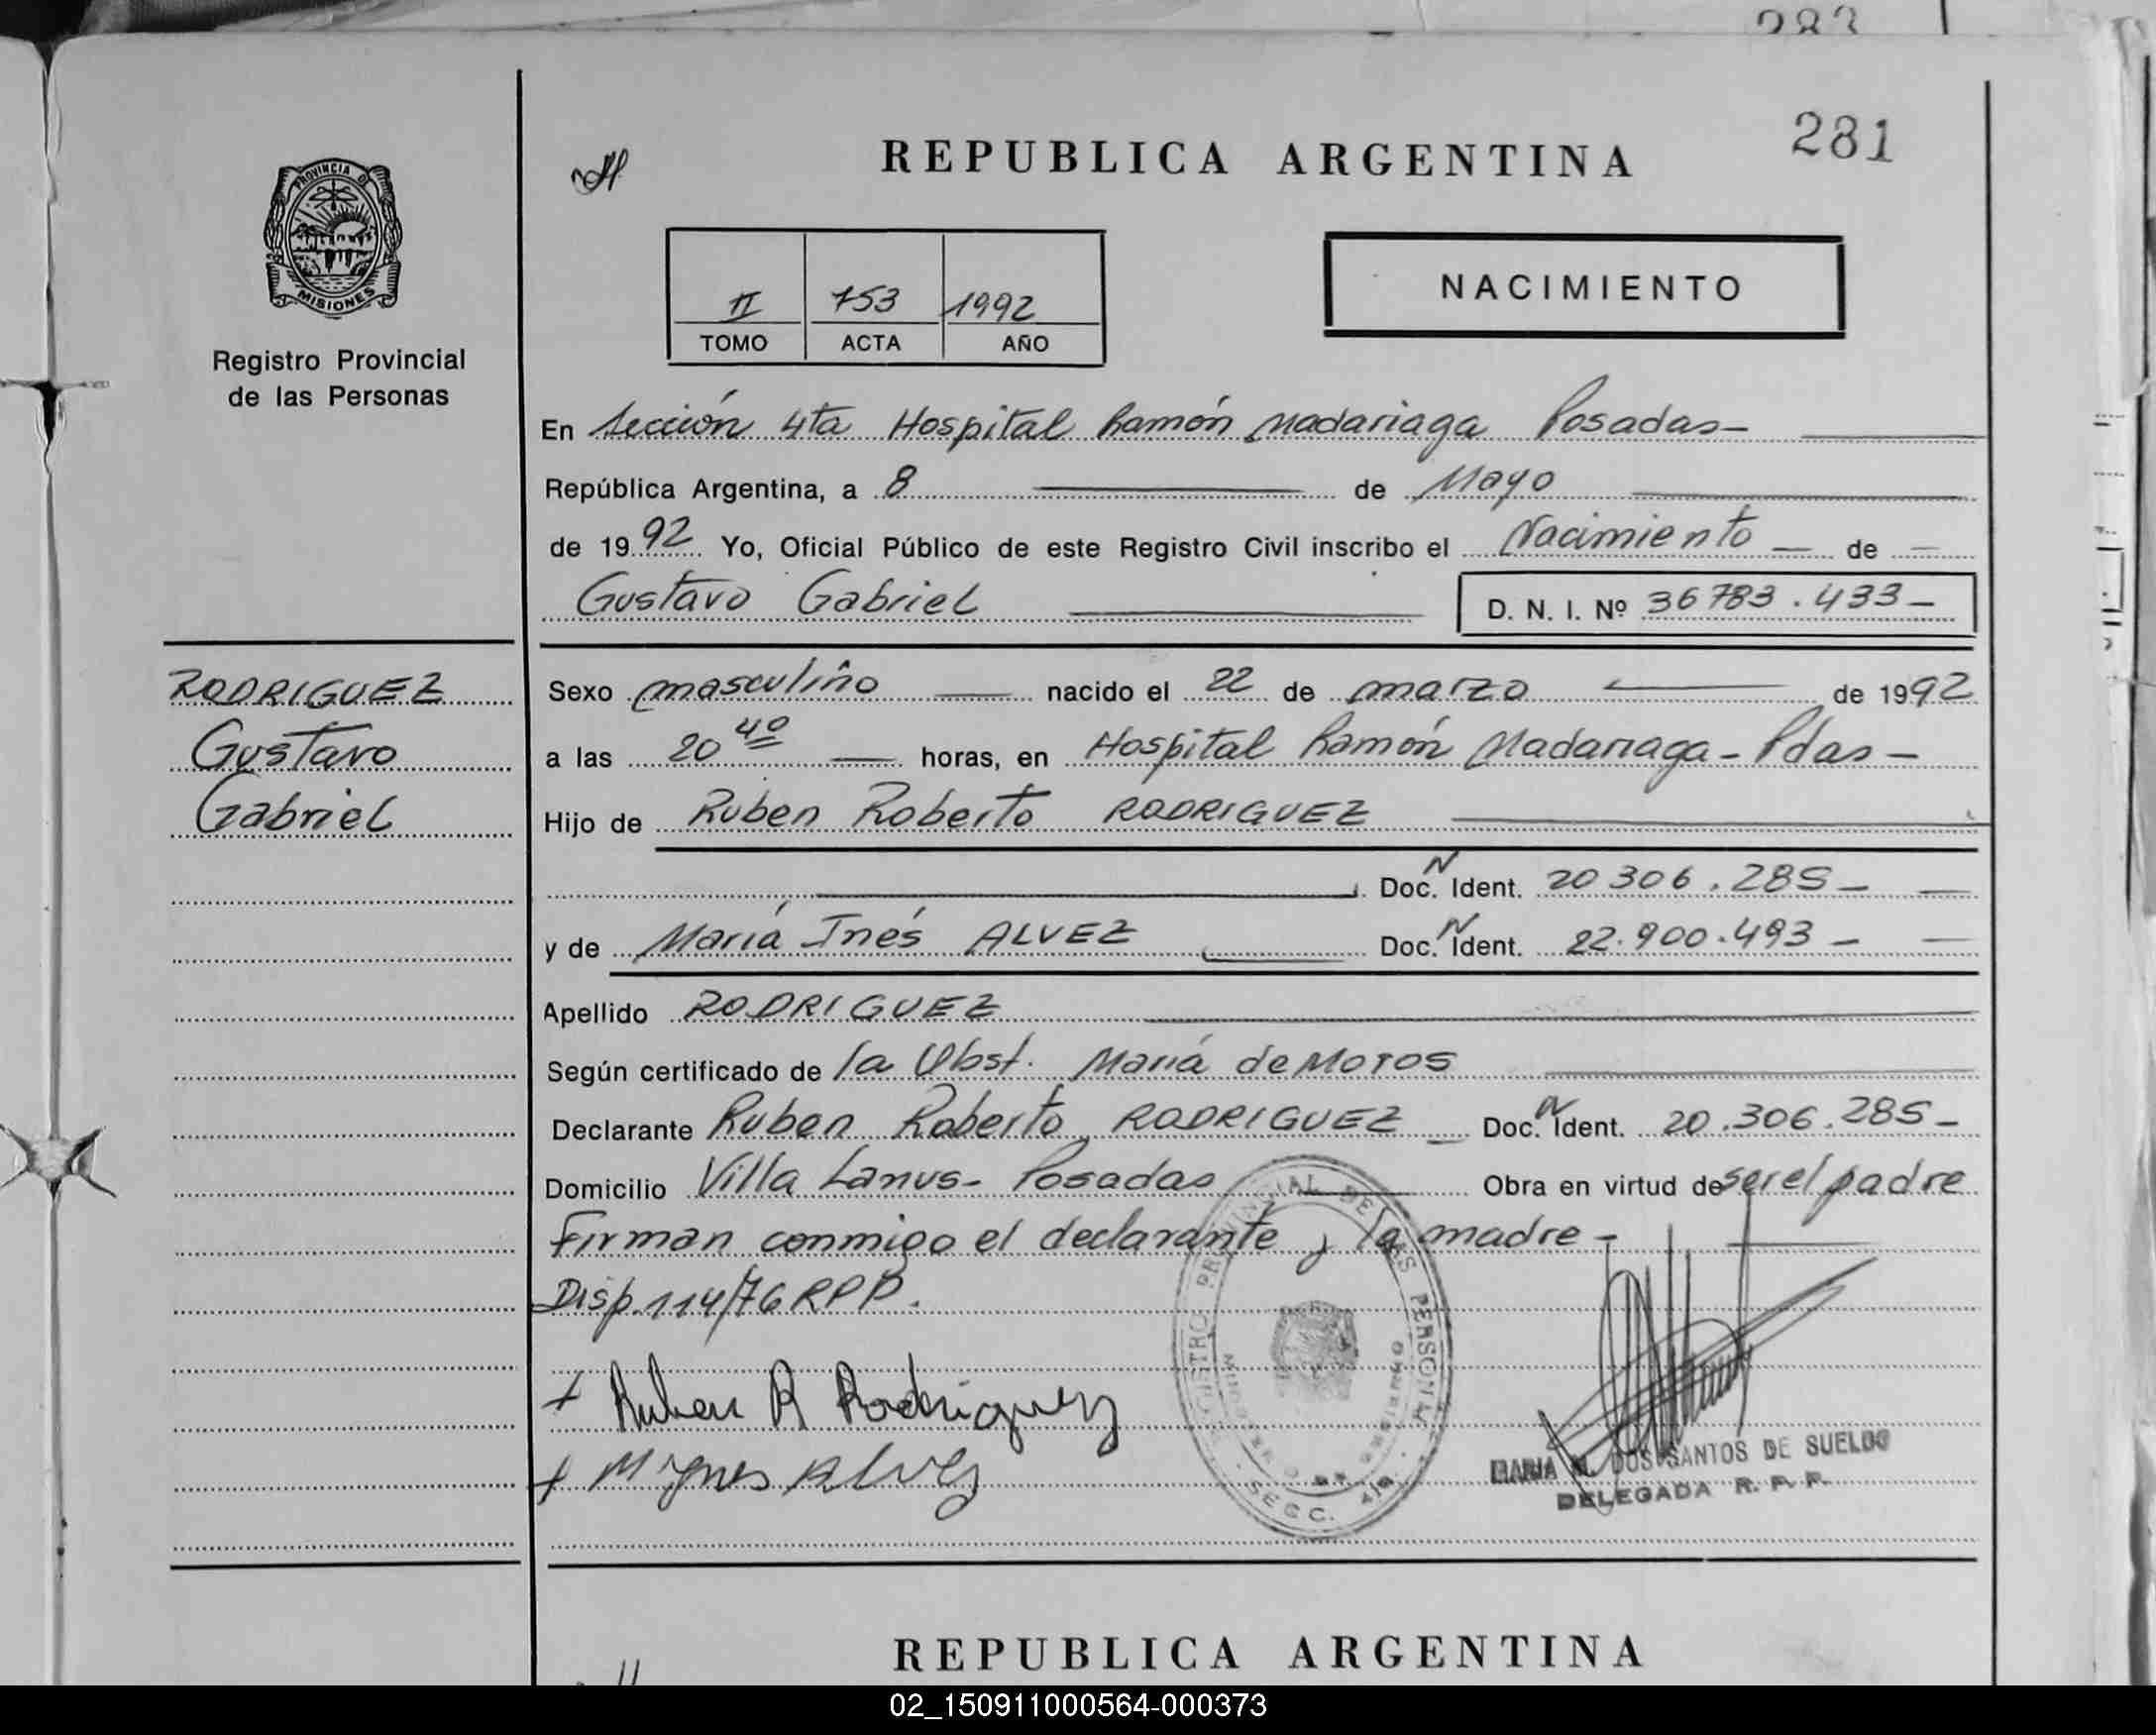 283
281
REPUBLICA ARGENTINA
PROVINCIA DE
MISIONES
Registro Provincial
de las Personas
NACIMIENTO
II 753 1992
TOMO ACTA AÑO
En Sección 4ta Hospital Ramón Madariaga Posadas-
República Argentina, a 8 de Mayo
de 1992 Yo, Oficial Público de este Registro Civil inscribo el Nacimiento de
Gustavo Gabriel D. N. I. Nº 36783.433-
RODRIGUEZ
Gustavo
Gabriel
Sexo masculino nacido el 22 de marzo de 1992
a las 20 40 horas, en Hospital Ramón Madariaga - Pdas-
Hijo de Ruben Roberto RODRIGUEZ
Doc. N Ident. 20 306.285-
y de María Inés ALVEZ Doc. N Ident. 22.900.493-
Apellido RODRIGUEZ
Según certificado de la Obst. María de Moros
Declarante Ruben Roberto RODRIGUEZ Doc. N Ident. 20.306.285-
Domicilio Villa Lanus- Posadas Obra en virtud de ser el padre
Firman conmigo el declarante y la madre-
Disp. 114/76 RPP.
+ Ruben R Rodriguez
+ M Ignes Alvez
REGISTRO PROVINCIAL DE LAS PERSONAS
SECC. 4ta
MARIA M. DOS SANTOS DE SUELDO
DELEGADA R. P. P.
REPUBLICA ARGENTINA
02_150911000564-000373